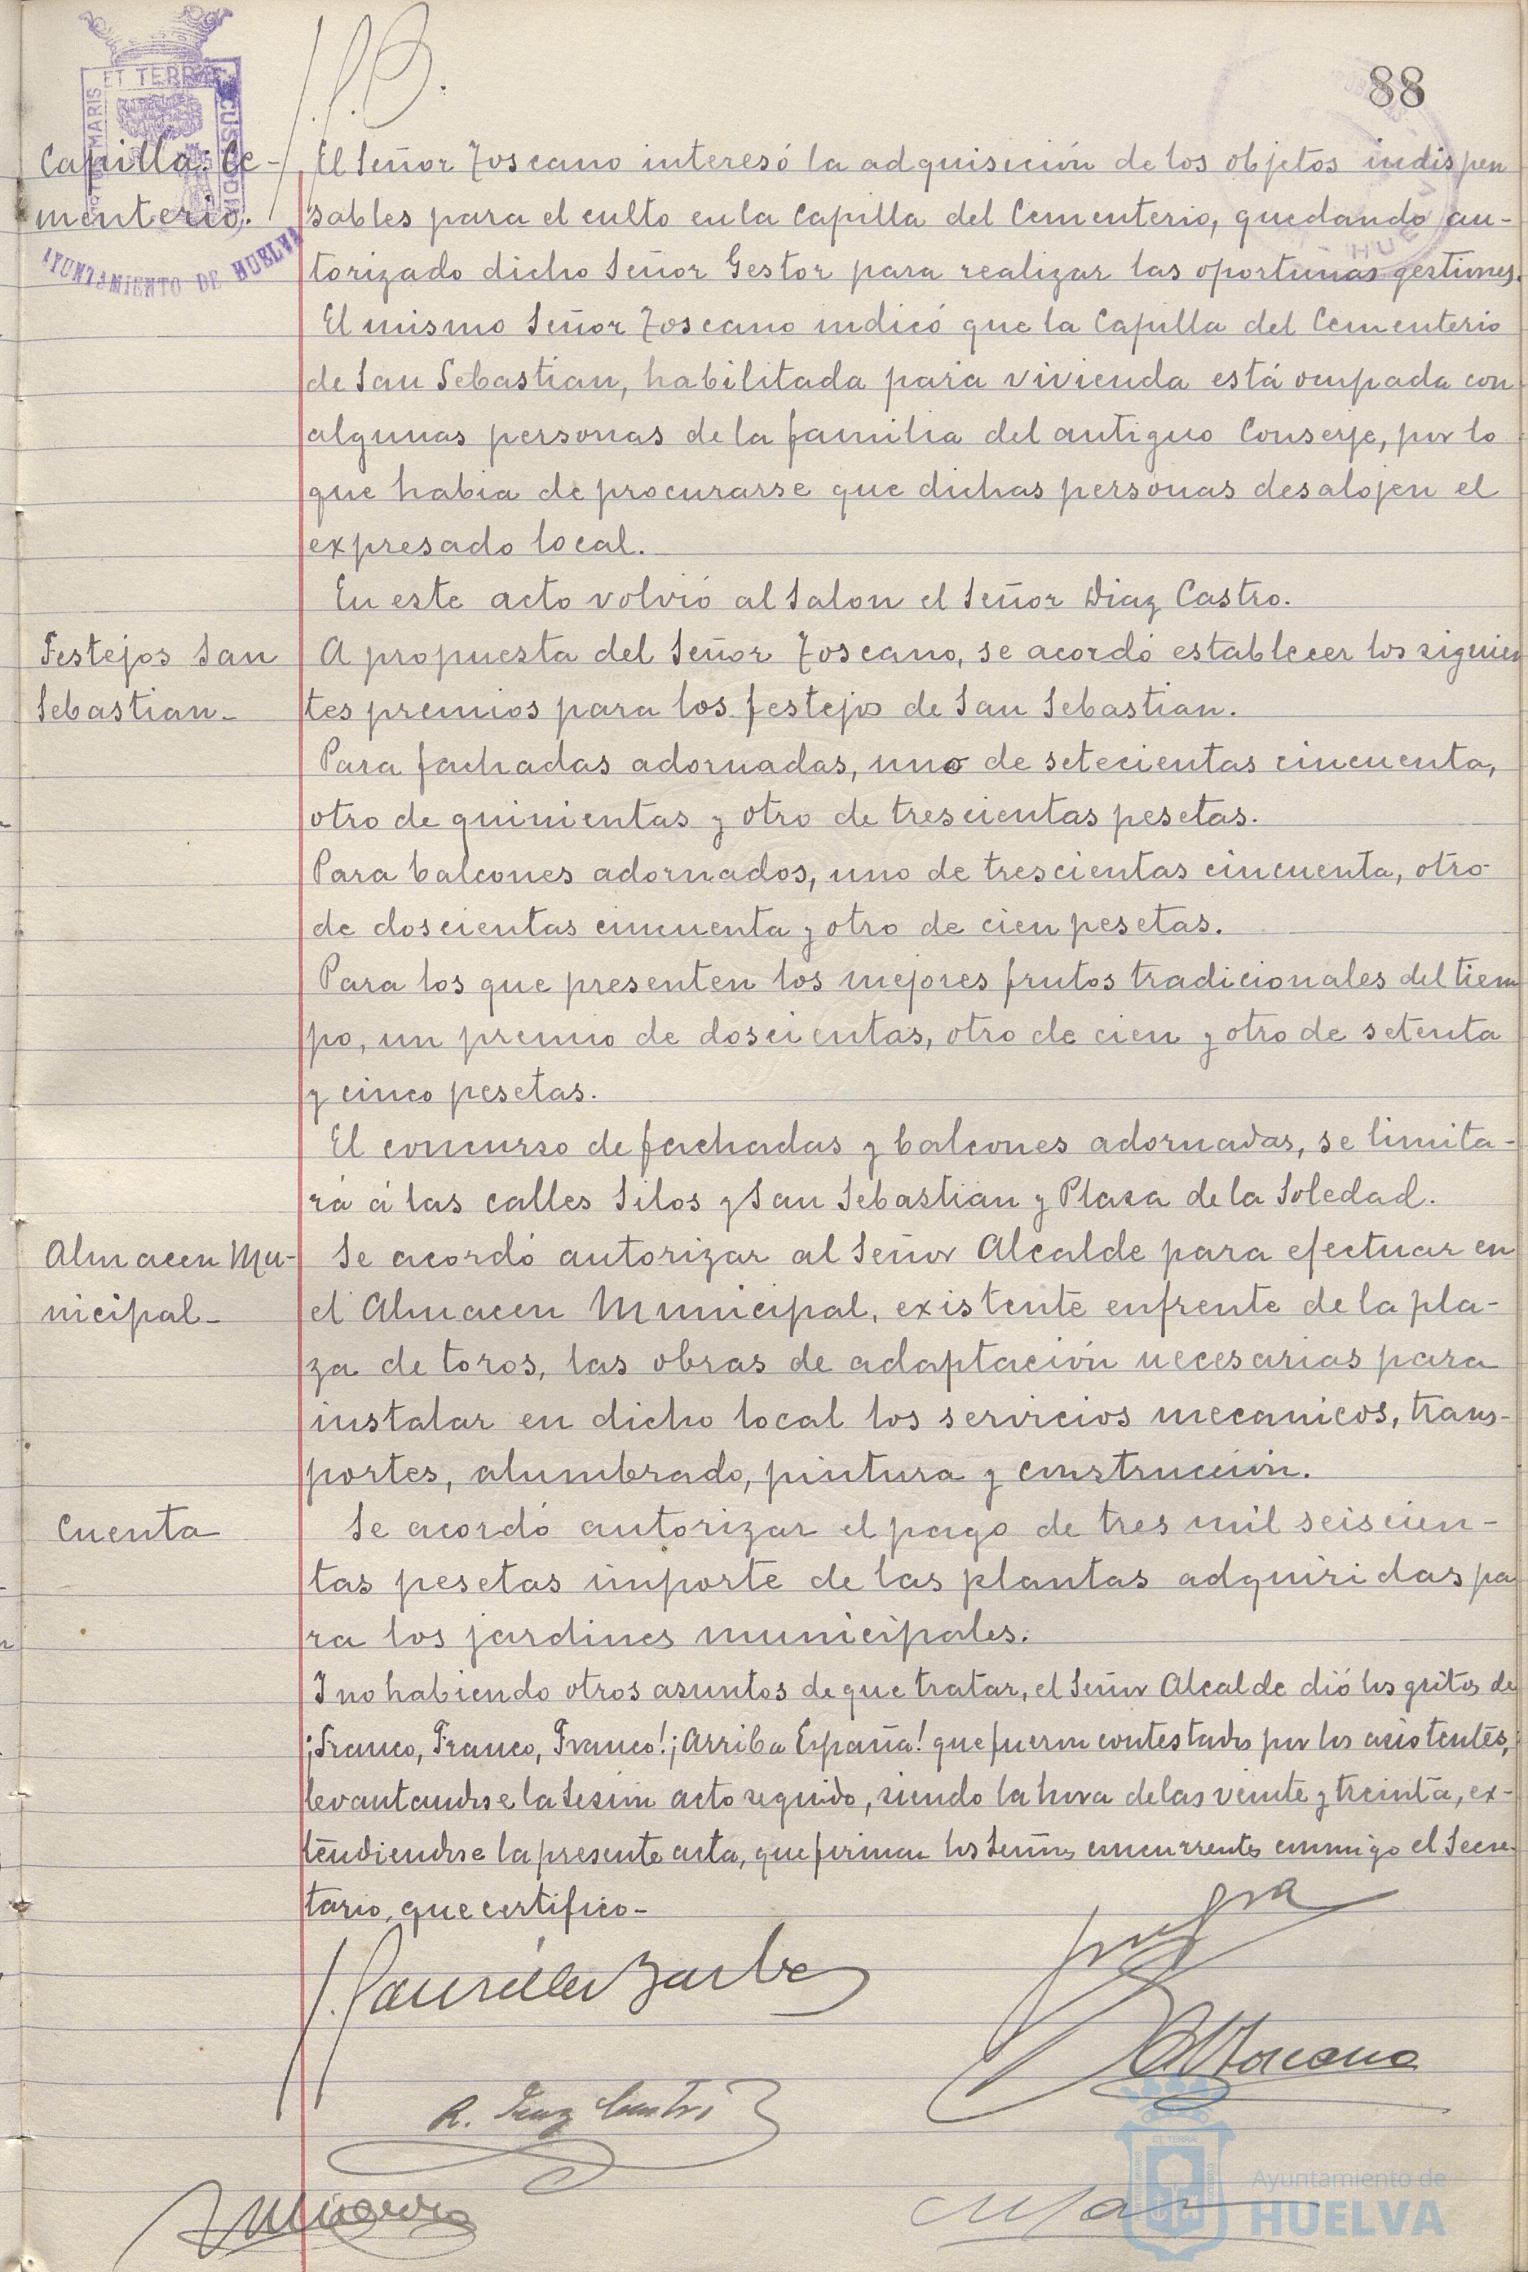 88
Capilla Ce-
menterio.
AYUNTAMIENTO DE HUELVA
El Señor Toscano interesó la adquisición de los objetos indispen
sables para el culto en la Capilla del Cementerio, quedando au-
torizado dicho Señor Gestor para realizar las oportunas gestiones.
El mismo Señor Toscano indicó que la Capilla del Cementerio
de San Sebastian, habilitada para vivienda está ocupada con
algunas personas de la familia del antiguo Conserje, por lo
que habia de procurarse que dichas personas desalojen el
expresado local.
En este acto volvió al Salon el Señor Diaz Castro.
Festejos San
Sebastian-
A propuesta del Señor Toscano, se acordó establecer los siguien
tes premios para los festejos de San Sebastian.
Para fachadas adornadas, uno de setecientas cincuenta,
otro de quinientas y otro de trescientas pesetas.
Para balcones adornados, uno de trescientas cincuenta, otro
de doscientas cincuenta y otro de cien pesetas.
Para los que presenten los mejores frutos tradicionales del tiem
po, un premio de doscientas, otro de cien y otro de setenta
y cinco pesetas.
El concurso de fachadas y balcones adornadas, se limita-
rá á las calles Silos y San Sebastian y Plaza de la Soledad.
Almacen Mu-
nicipal-
Se acordó autorizar al Señor Alcalde para efectuar en
el Almacen Municipal, existente enfrente de la pla-
za de toros, las obras de adaptación necesarias para
instalar en dicho local los servicios mecanicos, trans-
portes, alumbrado, pintura y construcción.
Cuenta
Se acordó autorizar el pago de tres mil seiscien-
tas pesetas importe de las plantas adquiridas pa
ra los jardines municipales.
Y no habiendo otros asuntos de que tratar, el Señor Alcalde dió los gritos de
¡Franco, Franco, Franco! ¡Arriba España! que fueron contestados por los asistentes,
levantandose la Sesión acto seguido, siendo la hora de las veinte y treinta, ex-
tendiendose la presente acta, que firman los Señores concurrentes conmigo el Secre-
tario, que certifico-
R. Diaz Castro
Toscano
Ayuntamiento de
HUELVA